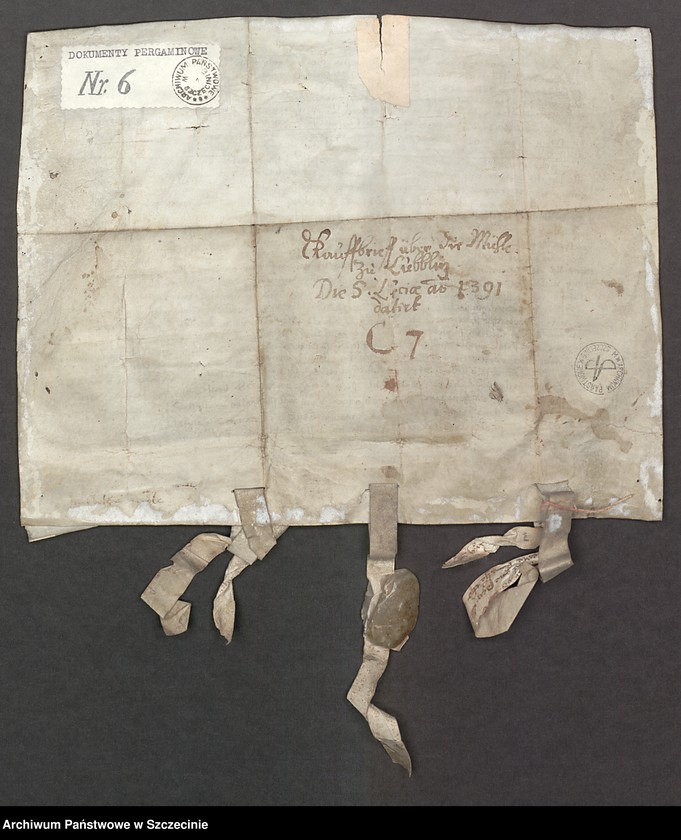 DOKUMENTY PERGAMINOWE
Nr. 6
ARCHIWUM PAŃSTWOWE W SZCZECINIE
Kauffbrieff über die Mühle
zu Lübblin
Die S. Luciæ aō 1391
datirt
C 7
Archiwum Państwowe w Szczecinie